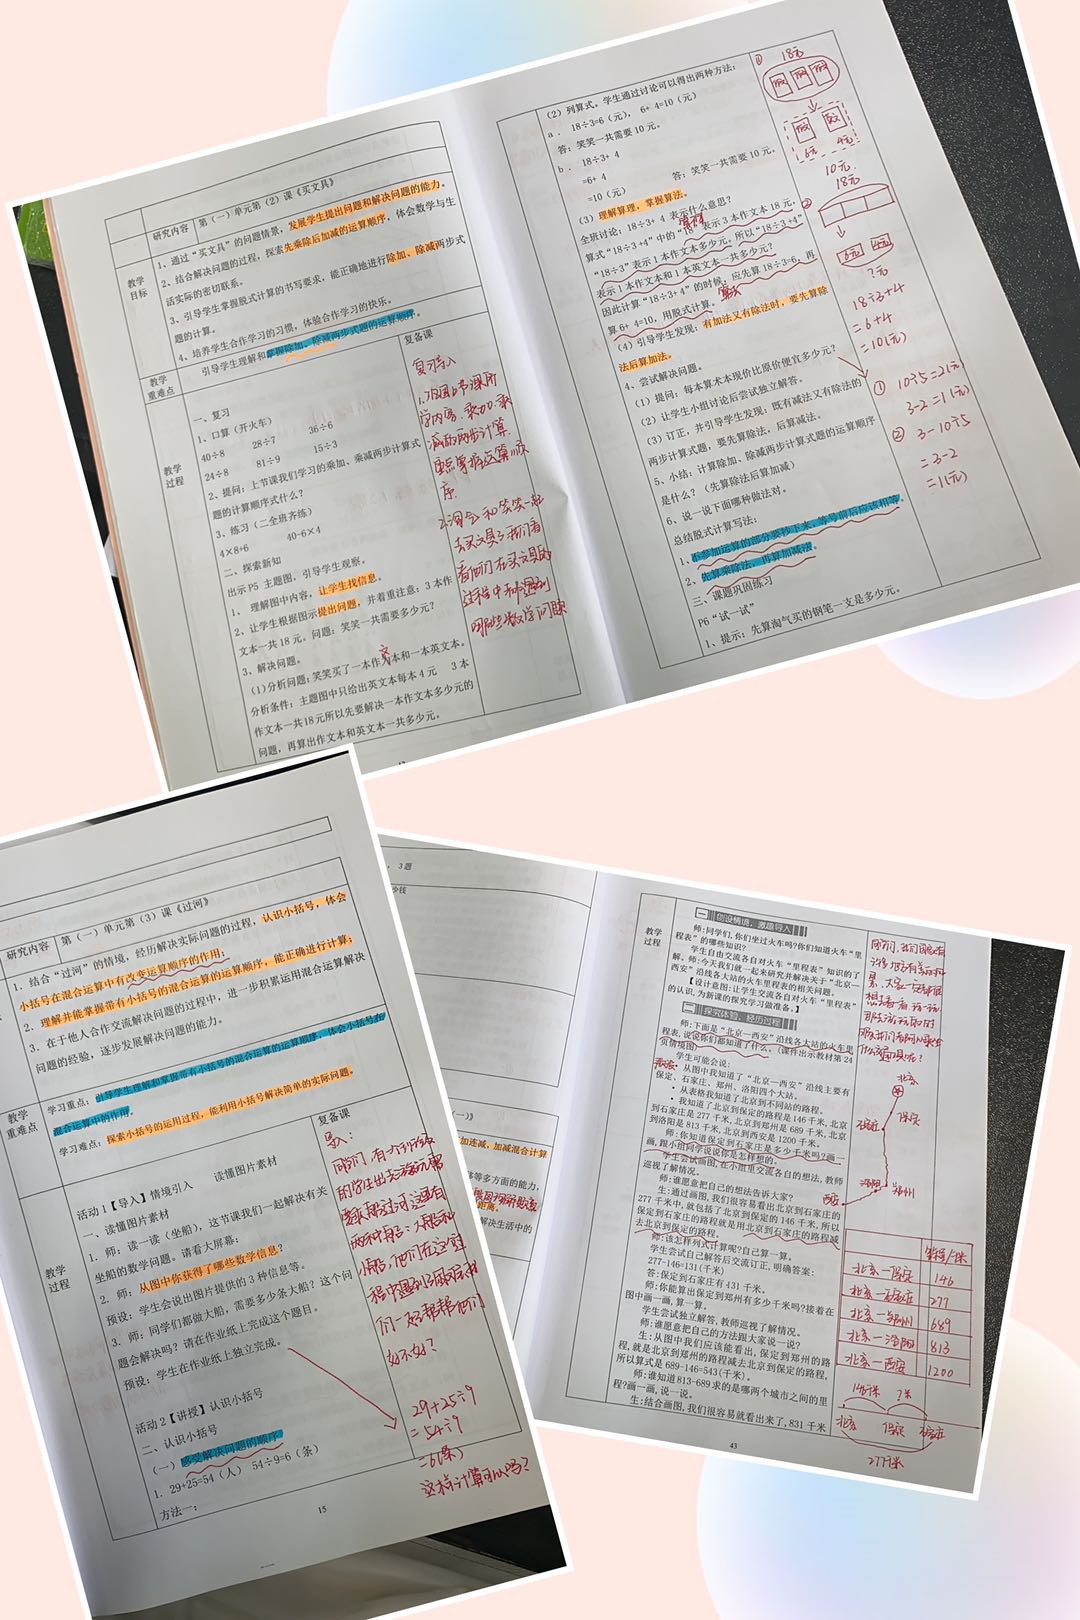 研究内容 第（一）单元第（2）课《买文具》
教学目标
1、通过“买文具”的问题情景，发展学生提出问题和解决问题的能力。
2、结合解决问题的过程，探索先乘除后加减的运算顺序，体会数学与生
活实际的密切联系。
3、引导学生掌握脱式计算的书写要求，能正确地进行除加、除减两步式
题的计算。
4、培养学生合作学习的习惯，体验合作学习的快乐。
教学重难点
引导学生理解和掌握除加、除减两步式题的运算顺序。
复备课
教学过程
一、复习
1、口算（开火车）
40÷8 28÷7 36÷6
24÷8 81÷9 15÷3
2、提问：上节课我们学习的乘加、乘减两步计算式
题的计算顺序式什么？
3、练习（二全班齐练）
4×8+6 40-6×4
二、探索新知
出示 P5 主题图，引导学生观察。
1、 理解图中内容，让学生找信息。
2、让学生根据图示提出问题，并着重注意：3 本作
文本一共 18 元。问题：笑笑一共需要多少元？
3、解决问题。
(1)分析问题；笑笑买了一本作文本和一本英文本。
分析条件：主题图中只给出英文本每本 4 元 3 本
作文本一共 18 元所以先要解决一本作文本多少元的
问题，再算出作文本和英文本一共多少元。
复习导入
2.淘气和笑笑一起
（2）列算式。学生通过讨论可以得出两种方法：
a． 18÷3=6（元）， 6+ 4=10（元）
答：笑笑一共需要 10 元。
b． 18÷3+ 4
=6+ 4
=10（元） 答：笑笑一共需要 10 元。
（3）理解算理，掌握算法。
全班讨论：18÷3+ 4 表示什么意思？
算式“18÷3 +4”中的“18”表示 3 本作文本 18 元，
“18÷3”表示 1 本作文本多少元，所以“18÷3+4”
表示 1 本作文本和 1 本英文本一共多少元？
因此计算“18÷3+ 4”的时候，应先算 18÷3=6，再
算 6+ 4=10，用脱式计算。
（4）引导学生发现：有加法又有除法时，要先算除
法后算加法。
4、尝试解决问题。
（1）提问：每本算术本现价比原价便宜多少元？
（2）让学生小组讨论后尝试独立解答。
（3）订正，并引导学生发现：既有减法又有除法的
两步计算式题，要先算除法，后算减法。
5、小结：计算除加、除减两步计算式题的运算顺序
是什么？（先算除法后算加减）
6、说一说下面哪种做法对。
总结脱式计算写法：
1、不参加运算的部分要抄下来，等号前后应该相等。
2、先算乘除法，再算加减法。
三、课题巩固练习
P6“试一试”
1、提示：先算淘气买的钢笔一支是多少元。
① 18元
6元 4元
10元
②
18元
6元 4元
?元
18÷3+4
=6+4
=10(元)
① 10÷5=2(元)
3-2=1(元)
② 3-10÷5
=3-2
=1(元)
研究内容 第（一）单元第（3）课《过河》
1．结合“过河”的情境，经历解决实际问题的过程，认识小括号，体会
小括号在混合运算中有改变运算顺序的作用；
2．理解并能掌握带有小括号的混合运算的运算顺序，能正确进行计算；
3．在于他人合作交流解决问题的过程中，进一步积累运用混合运算解决
问题的经验，逐步发展解决问题的能力。
教学重难点
学习重点：引导学生理解和掌握带有小括号的混合运算的运算顺序，体会小括号在
混合运算中的作用。
学习难点：探索小括号的运用过程，能利用小括号解决简单的实际问题。
复备课
教学过程
活动 1【导入】情境引入 读懂图片素材
一、读懂图片素材
1．师：读一读（坐船），这节课我们一起解决有关
坐船的数学问题。请看大屏幕：
2．师：从图中你获得了哪些数学信息？
预设：学生会说出图片提供的 3 种信息等。
3．师：同学们都做大船，需要多少条大船？这个问
题会解决吗？请在作业纸上完成这个题目。
预设：学生在作业纸上独立完成。
活动 2【讲授】认识小括号
二、认识小括号
（一）感受解决问题的顺序
1．29+25=54（人） 54÷9=6（条）
方法一：
15
导入：
好不好？
29+25÷9
=54÷9
=6(条)
这样计算可以吗？
，3题
少钱
加连减，加减混合计算
等多方面的能力，
解决生活中的
教学过程
一 创设情境，激趣导入
师：同学们，你们坐过火车吗？你们知道火车“里
程表”的哪些知识？
学生自由交流各自对火车“里程表”知识的了
解。师：今天我们就一起来研究并解决关于“北京—
西安”沿线各大站的火车里程表的相关问题。
【设计意图：让学生交流各自对火车“里程表”
的认识，为新课的探究学习做准备。】
二 探究体验，经历过程
师：下面是“北京—西安”沿线各大站的火车里
程表，说说你们都知道了什么。（课件出示教材第 24
页情境图）
学生可能会说：
• 从图中我知道了“北京—西安”沿线主要有
保定、石家庄、郑州、洛阳四个大站。
• 从表格我知道了北京到不同站的路程。
• 我知道了北京到保定的路程是 146 千米，北京
到石家庄是 277 千米，北京到郑州是 689 千米，北京
到洛阳是 813 千米，北京到西安是 1200 千米。
师：你知道保定到石家庄是多少千米吗？画一
画，跟小组同学说说你是怎样想的。
学生尝试画图，在小组里交流各自的想法，教师
巡视了解情况。
师：谁愿意把自己的想法告诉大家？
生：通过画图，我们很容易看出北京到石家庄的
277 千米中，就包括了北京到保定的 146 千米，所以
保定到石家庄的路程就是用北京到石家庄的路程减
去北京到保定的路程。
师：该怎样列式计算呢？自己算一算。
学生尝试自己解答后交流订正，明确答案：
277-146=131(千米)
答：保定到石家庄有 431 千米。
师：你能算出保定到郑州有多少千米吗？接着在
图中画一画，算一算。
学生尝试独立解答，教师巡视了解情况。
师：谁愿意把自己的方法跟大家说一说？
生：从图中我们应该能看出，保定到郑州的路
程，就是北京到郑州的路程减去北京到保定的路程，
所以算式是 689-146=543(千米)。
师：谁知道 813-689 求的是哪两个城市之间的里
程？画一画，说一说。
生：结合画图，我们很容易就看出来了，831 千米
43
北京
保定
石家庄
郑州
洛阳
西安
里程/千米
北京—保定 146
北京—石家庄 277
北京—郑州 689
北京—洛阳 813
北京—西安 1200
146千米 ?米
北京 保定 石家庄
277千米